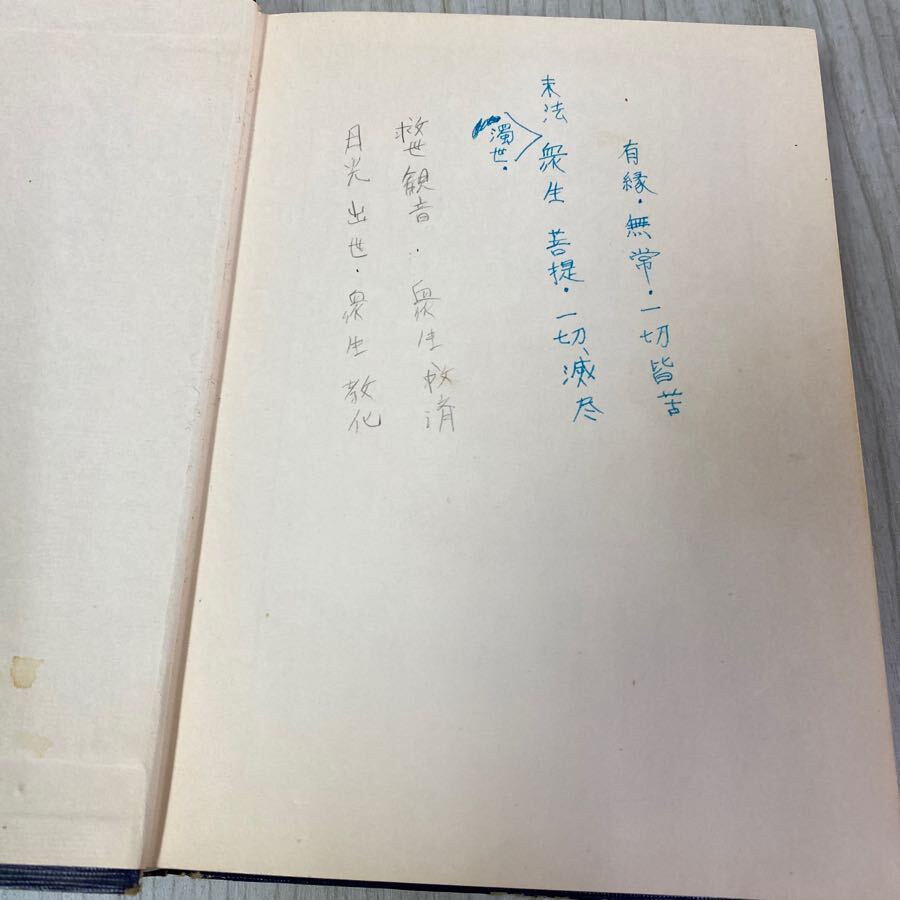 有縁・無常・一切皆苦
末法 衆生 菩提・一切、滅尽
濁世・
救世観音・衆生救済
月光出世・衆生教化